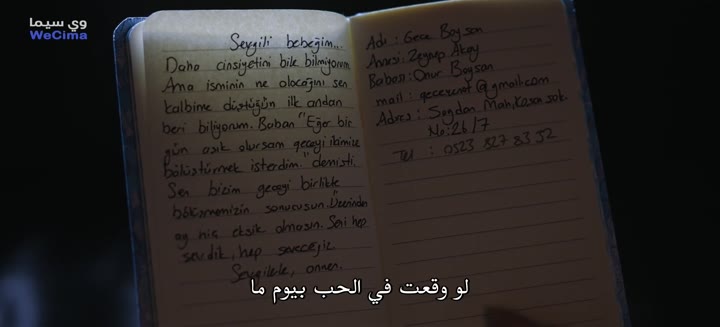 وي سيما
WeCima
Sevgili bebeğim...
Daha cinsiyetini bile bilmiyorum
Ama isminin ne olacağını sen
kalbime düştüğün ilk andan
beri biliyorum. Baban "Eğer bir
gün aşık olursam geceyi ikimize
bölüştürmek isterdim." demişti.
Sen bizim geceyi birlikte
bölüşmemizin sonucusun. Üzerinden
ay hiç eksik olmasın. Seni hep
sevdik, hep seveceğiz
Sevgilerle, annen.
Adı : Gece Boysan
Annesi : Zeynep Akay
Babası : Onur Boysan
mail : @gmail.com
Adres : Mah, sok.
No: 26/7
Tel : 0523 827 83 52
لو وقعت في الحب بيوم ما